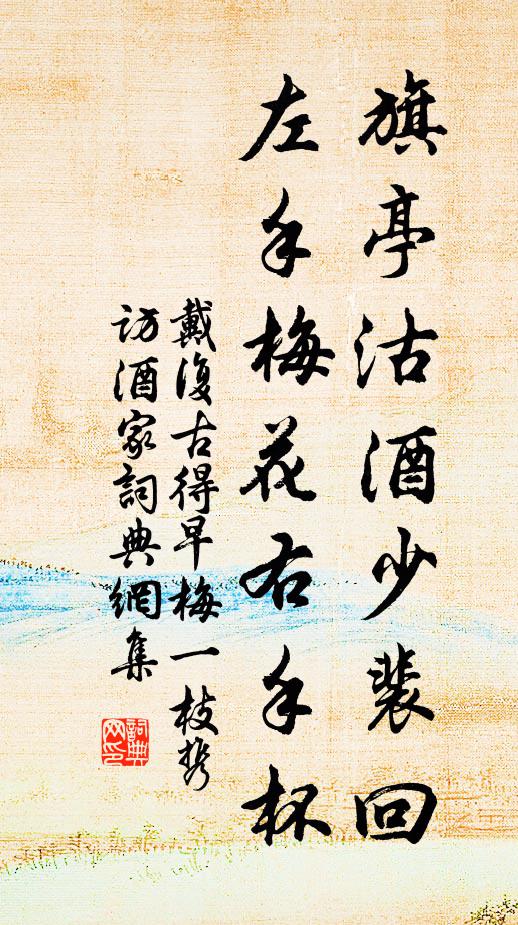 旗亭沽酒少裴回
左手梅花右手杯
戴復古得早梅一枝携
訪酒家詞典網集
詞典網印